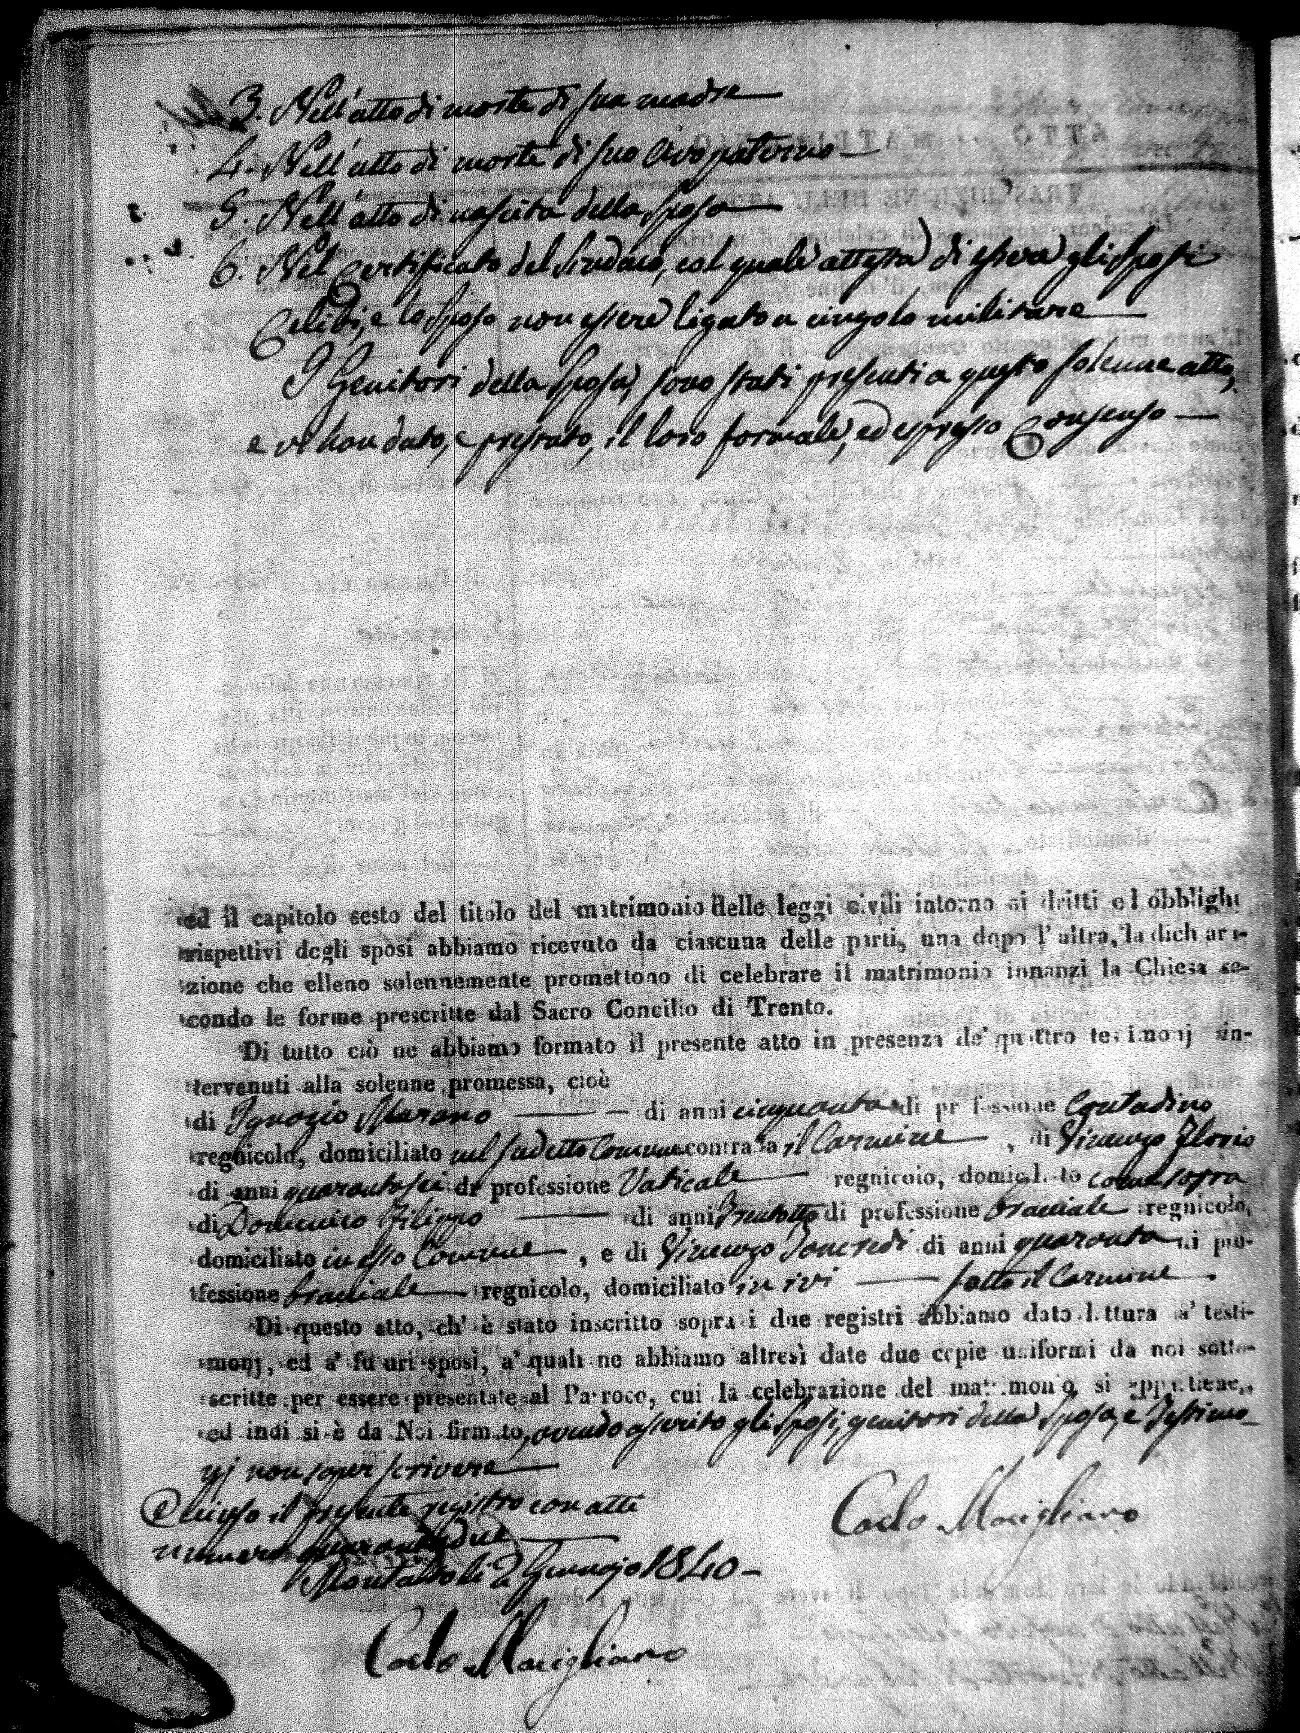 3. Nell'atto di morte di sua madre
4. Nell'atto di morte di suo Avo paterno
5. Nell'atto di nascita della Sposa
6. Nel Certificato del Sindaco, col quale attesta di essere gli Sposi
Celibi, e lo Sposo non essere ligato a cingolo militare
I Genitori della Sposa, sono stati presenti a questo solenne atto,
e vi han dato, e prestato, il loro formale, ed espresso Consenso
ed il capitolo sesto del titolo del matrimonio delle leggi civili intorno ai dritti ed obblighi
rispettivi degli sposi abbiamo ricevuto da ciascuna delle parti, una dopo l'altra, la dichiara-
zione che elleno solennemente promettono di celebrare il matrimonio innanzi la Chiesa se-
condo le forme prescritte dal Sacro Concilio di Trento.
Di tutto ciò ne abbiamo formato il presente atto in presenza de' quattro testimonj in-
tervenuti alla solenne promessa, cioè
di Ignazio Marano di anni cinquanta di professione Contadino
regnicolo, domiciliato nel sudetto Comune contrada il Carmine, di Vincenzo Florio
di anni quarantasei di professione Vaticale regnicolo, domiciliato come sopra
di Domenico Filippo di anni trentotto di professione bracciale regnicolo,
domiciliato in esso Comune, e di Vincenzo Toncredi di anni quaranta di pro-
fessione bracciale regnicolo, domiciliato in ivi sotto il Carmine.
Di questo atto, ch'è stato inscritto sopra i due registri abbiamo data lettura a' testi-
monj, ed a' futuri sposi, a' quali ne abbiamo altresì date due copie uniformi da noi sotto-
scritte per essere presentate al Parroco, cui la celebrazione del matrimonio si appartiene,
ed indi si è da Noi firmato, avendo asserito gli Sposi, genitori della Sposa, e Testimo-
nj non saper scrivere
Carlo Marigliano
Chiuso il presente registro con atti
numero quarantadue
li 2 Gennajo 1840
Carlo Marigliano